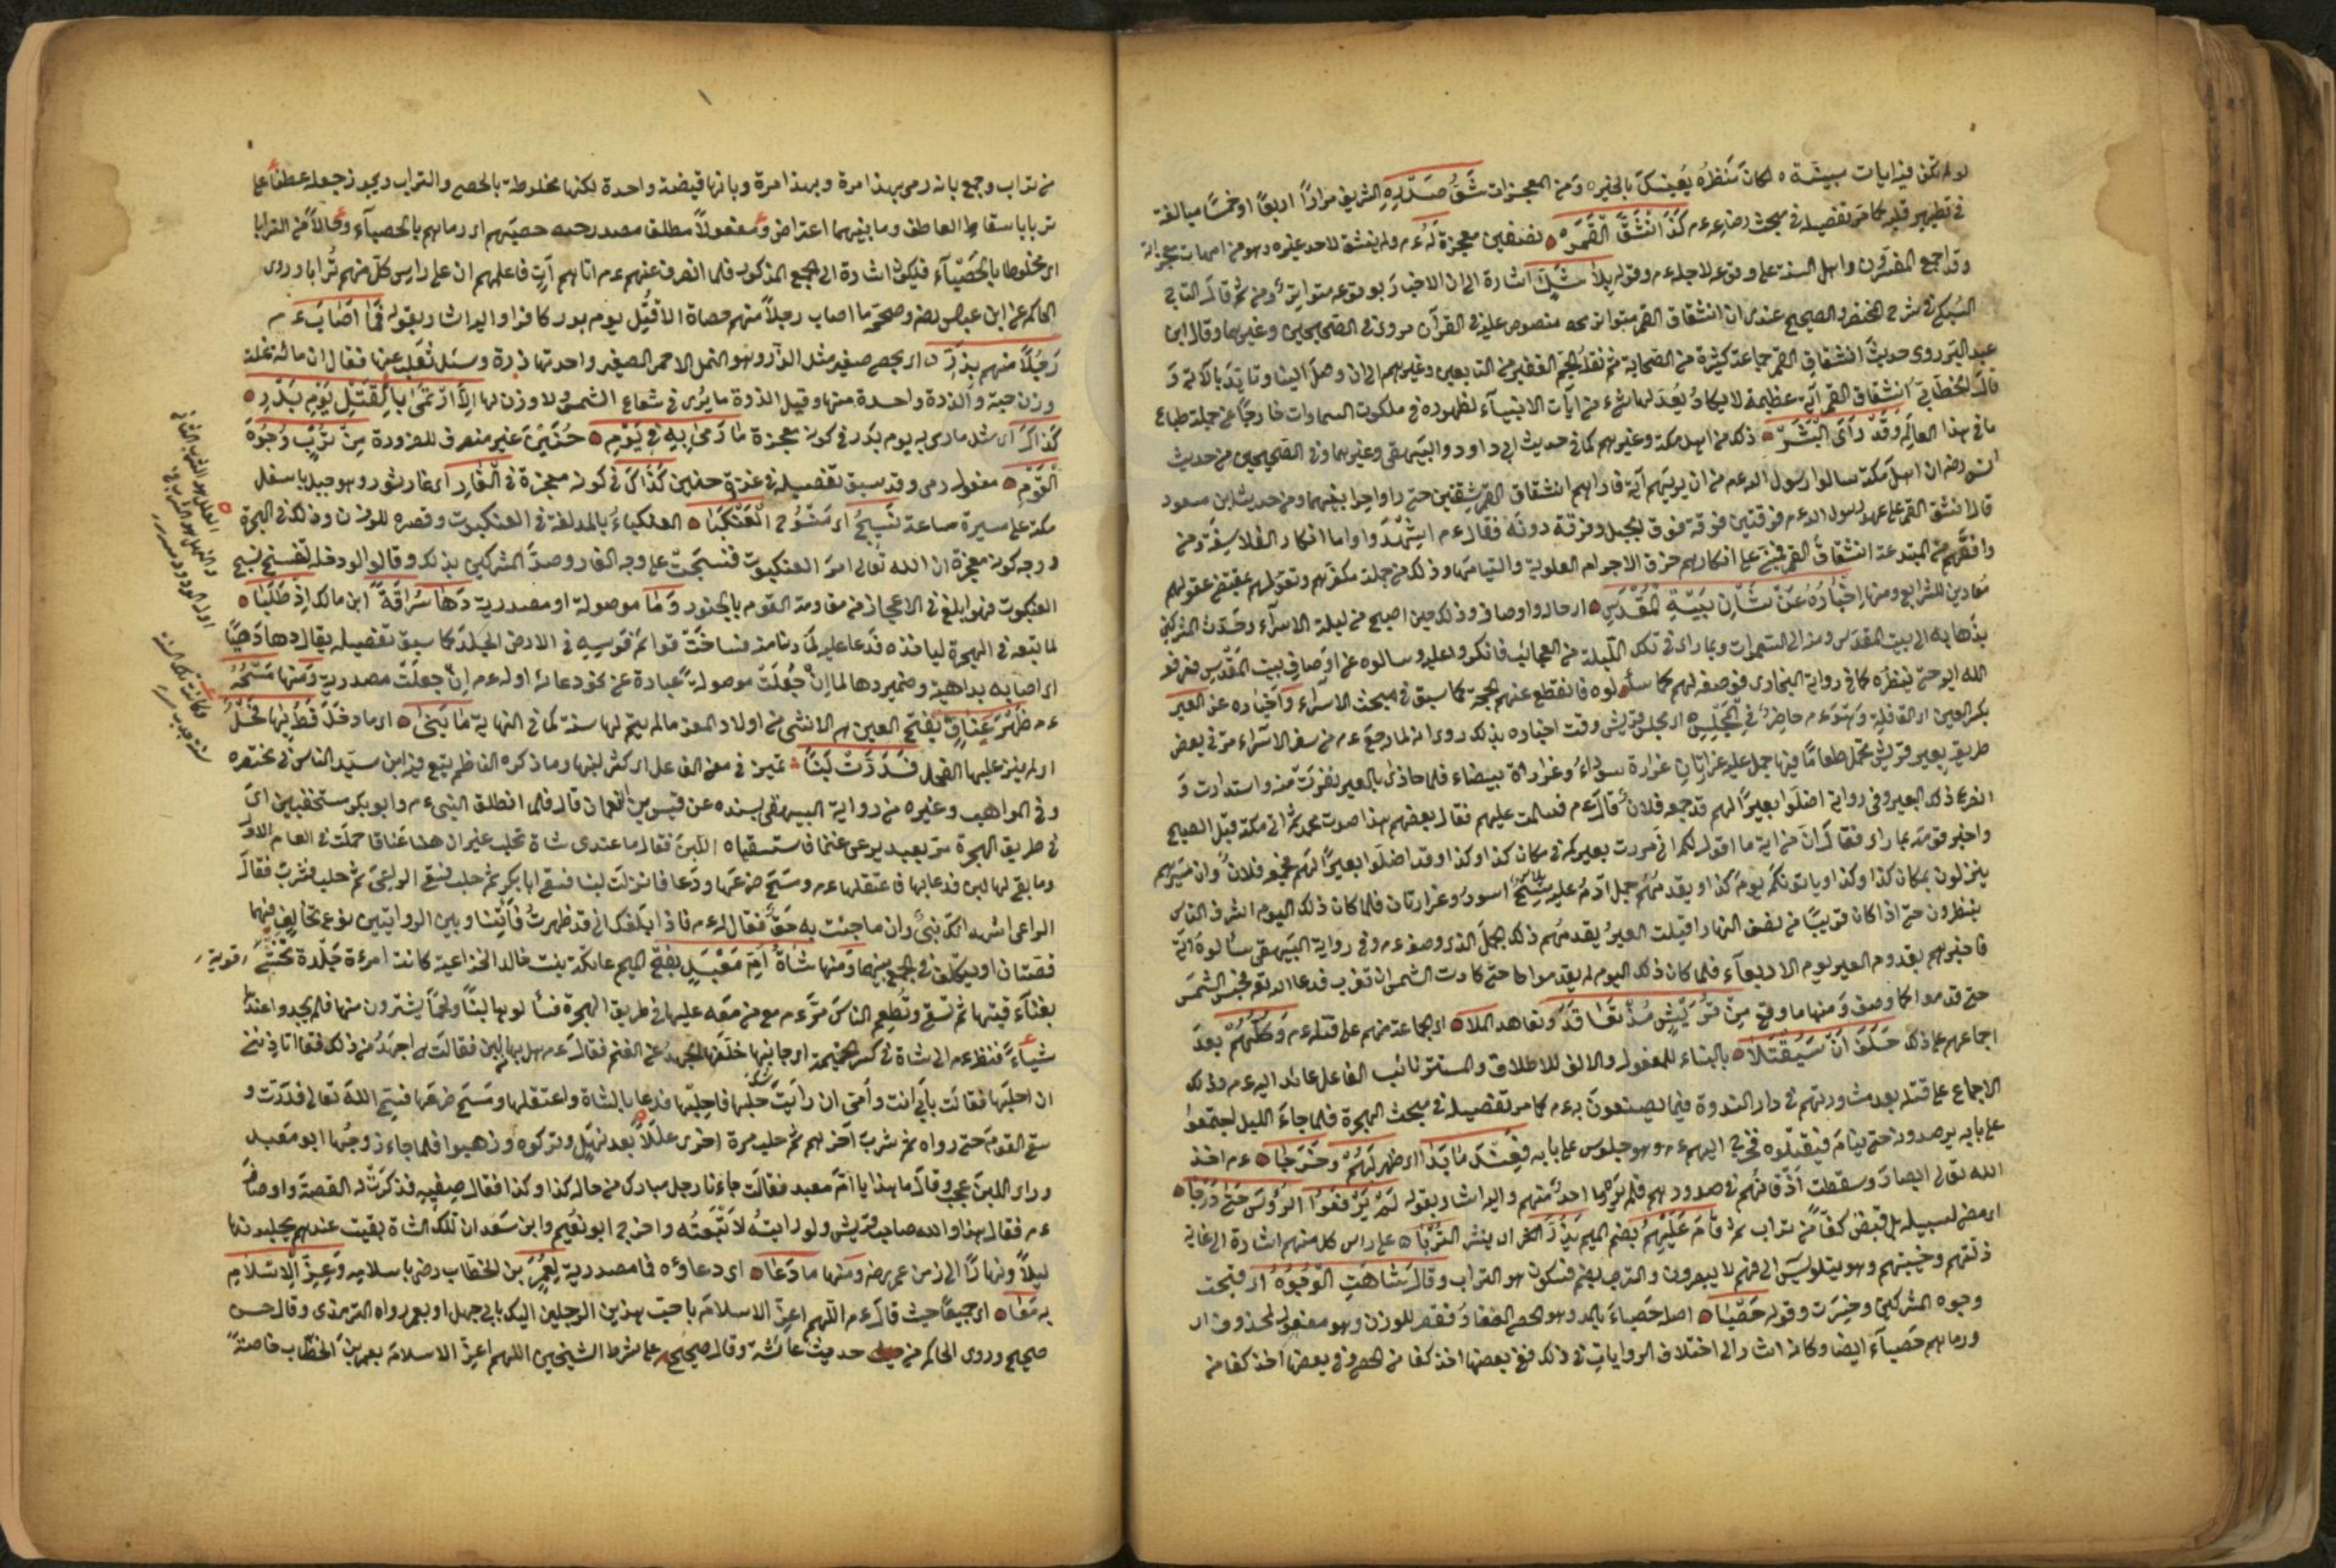 لو لم تكن فيه ايات مبينة ه لكان منظره ينبئك بالخبر ه ومن المعجزات شق صدره الشريف مرارا اربعا او خمسا مبالغة
في تطهير قلبه كما مر تفصيله في مبحث رضاعه عم كذا انشق القمر ه نصفين معجزة له عم ولم ينشق لاحد غيره وهو من امهات معجزاته
وقد اجمع المفسرون واهل السنة على وقوعه لاجله عم وقوله بلا شك اشارة الى ان الاخبار بوقوعه متواترة ومن ثم قال التاج
السبكي في شرح المختصر والصحيح عندي ان انشقاق القمر متواتر منصوص عليه في القرآن مروي في الصحيحين وغيرهما وقال ابن
عبد البر روى حديث انشقاق القمر جماعة كثيرة من الصحابة ثم نقله الجم الغفير من التابعين وغيرهم الى ان وصل الينا وتايد بالآية و
قال الخطابي انشقاق القمر آية عظيمة لا يكاد يعدلها شيء من آيات الانبياء لظهوره في ملكوت السماوات خارجا عن جملة طباع
ما في هذا العالم وقد رآى البشر ه ذلك من اهل مكة وغيرهم كما في حديث ابي داود والبيهقي وغيرهما وفي الصحيحين من حديث
انس رضه ان اهل مكة سالوا رسول الله عم ان يريهم آية فاراهم انشقاق القمر شقتين حتى راوا حراء بينهما ومن حديث ابن مسعود
قال انشق القمر على عهد رسول الله عم فرقتين فرقة فوق الجبل وفرقة دونه فقال عم اشهدوا واما انكار الفلاسفة ومن
وافقهم من المبتدعة انشقاق القمر فمبني على انكارهم خرق الاجرام العلوية والتيامها وذلك من جملة مكفرهم وتعولهم بمقتضى عقولهم
معادين للشرايع ومنها اخباره عن شان بيت المقدس ه ارحاله واوصافه وذلك حين اصبح من ليلة الاسراء وحدث المشركين
بذهابه الى بيت المقدس ومنه الى السموات وبما راى في تلك الليلة من العجائب فانكروا عليه وسالوه عن اوصاف بيت المقدس فرفعه
الله اليه حتى ينظره كما في رواية البخاري فوصفه لهم كما سألوه فانقطع عنهم الحجة كما سبق في مبحث الاسراء واخباره عن العير
بكسر العين اى القافلة وهو عم حاضر في المجلس ه اى مجلس قريش وقت اخباره بذلك روى انه لما رجع عم من سفر الاسراء مر في بعض
طريقه بعير قريش تحمل طعاما فيها جمل عليه غرارتان غرارة سوداء وغرارة بيضاء فلما حاذى بالعير نفرت منه واستدارت و
انصرع ذلك البعير وفي رواية اضلوا بعيرا لهم قد جمعه فلان قال عم فسلمت عليهم فقال بعضهم هذا صوت محمد ثم اتى مكة قبل الصبح
واخبر قومه بما راى فقال ان من آية ما اقول لكم اني مررت بعيركم في مكان كذا وكذا وقد اضلوا بعيرا لهم فجمعه فلان وان مسيرهم
ينزلون بمكان كذا وكذا وياتونكم يوم كذا ويقدمهم جمل آدم عليه مسح اسود وغرارتان فلما كان ذلك اليوم اشرف الناس
ينظرون حتى اذا كان قريبا من نصف النهار اقبلت العير يقدمهم ذلك الجمل الذي وصفه عم وفي رواية البيهقي سألوه آية
فاخبرهم بقدوم العير يوم الاربعاء فلما كان ذلك اليوم لم يقدموا حتى كادت الشمس ان تغرب فدعا الله فحبس الشمس
حتى قدموا كما وصف ومنها ما وقع من قريش مذ تعاقد وتعاهد الملا ه اى جماعة منهم على قتله عم وكلهم بعد
اجماعهم على ذلك حلف ان سيقتلا ه بالبناء للمفعول والالف للاطلاق والمستتر نائب الفاعل عائد اليه عم وذلك
الاجماع على قتله بعد مشورتهم في دار الندوة فيما يصنعون به عم كما مر تفصيله في مبحث الهجرة فلما جاء الليل اجتمعوا
على بابه يرصدونه حتى ينام فيقتلوه فخرج اليهم عم وهو جلوس على بابه فعند ما بدا اى ظهر لهم وخرجا ه عم اخذ
الله تعالى ابصارهم وسقطت اذقانهم في صدورهم فلم يره احد منهم واليه اشار بقوله لم يرفعوا الرؤس حتى درجا ه
اى مضى لسبيله بل قبض كفا من تراب ثم قام عليهم بضم الميم يذر الخ اى ينثر التربا ه على راس كل منهم اشارة الى غاية
ذلتهم وخيبتهم وهو يتلو يس الى فهم لا يبصرون والترب بضم فسكون هو التراب وقال شاهت الوجوه اى قبحت
وجوه المشركين وخسرت وقوله حصبا ه اصله حصباء بالمد وهو الحصى الصغار فقصر للوزن وهو مفعول لمحذوف اى
ورماهم حصباء ايضا وكانه اشار الى اختلاف الروايات في ذلك ففي بعضها اخذ كفا من الحصى وفي بعضها اخذ كفا من
من تراب وجمع بانه رمى بهذا مرة وبهذا مرة وبانها قبضة واحدة لكنها مخلوطة بالحصى والتراب ويجوز جعله عطفا على
تربا باسقاط العاطف وما بينهما اعتراض ومفعولا مطلقا مصدر حصبهم اى رماهم بالحصباء وحالا من الترابا
اى مخلوطا بالحصباء فيكون اشارة الى الجمع المذكور فلما انصرف عنهم عم اتاهم آت فاعلمهم ان على راس كل منهم ترابا وروى
الحاكم عن ابن عباس رضه وصححه ما اصاب رجلا منهم حصاة الا قتل يوم بدر كافرا واليه اشار بقوله فما اصابت عم
رجلا منهم بذرة اى بحصى صغير مثل الذر وهو النمل الاحمر الصغير واحدتها ذرة وسئل ثعلب عنها فقال ان مائة نملة
وزن حبة والذرة واحدة منها وقيل الذرة ما يرى في شعاع الشمس ولا وزن لها الا ارتمى بالقتل يوم بدر ه
كذاك اى مثل ما رمى به يوم بدر في كونه معجزة ما رمى به في يوم ه حنين غير منصرف للضرورة من ترب وجوه
القوم ه مفعول رمى وقد سبق تفصيله في غزوة حنين كذاك في كونه معجزة في الغار اى غار ثور وهو جبل باسفل
مكة على مسيرة ساعة نسج اى منسوج العنكبا ه العنكباء بالمد لغة في العنكبوت وقصره للوزن وذلك في الهجرة
ووجه كونه معجزة ان الله تعالى امر العنكبوت فنسجت على وجه الغار وصد المشركين بذلك وقالوا لو دخله لتفسخ نسج
العنكبوت فهو ابلغ في الاعجاز من مقاومة القوم بالجنود وما موصولة او مصدرية دها سراقة ابن مالك اذ طلبا ه
لما تبعه في الهجرة لياخذه فدعا عليه لما دنا منه فساخت قوائم فرسه في الارض الجلد كما سبق تفصيله يقال دها دهيا
اى اصابه بداهية وضمير دها لما ان جعلت موصولة عبارة عن نحو دعائه او له عم ان جعلت مصدرية ومنها مسحه
عم ظهر عناق بفتح العين هى الانثى من اولاد المعز ما لم يتم لها سنة كما في النهاية ما ينجا ه اى ما دخل قط بها فحل
او لم ينز عليها الفحل فدرت لبنا ه تمييز في معنى الفاعل اى كثر لبنها وما ذكره الناظم يتبع فيه ابن سيد الناس في مختصره
وفي المواهب وغيره من رواية البيهقي بسنده عن قيس بن النعمان قال فلما انطلق النبي عم وابو بكر مستخفيين اى
في طريق الهجرة مر بعبد يرعى غنما فاستسقياه اللبن فقال ما عندي شاة تحلب غير ان هنا عناقا حملت في العام الاول
وما بقي لها لبن فدعا بها فاعتقلها عم ومسح ضرعها ودعا فانزلت لبنا فسقى ابا بكر ثم حلب فسقى الراعي ثم حلب فشرب فقال
الراعي اشهد انك نبي وان ما جئت به حق فقال له عم فاذا بلغك اني قد ظهرت فأتنا وبين الروايتين نوع تخالف فهما
قصتان او يتكلف في الجمع بينهما ومنها شاة ام معبد بفتح الميم عاتكة بنت خالد الخزاعية كانت امرءة جلدة تحتبي قوية
بفناء قبتها ثم تسقى وتطعم الناس مر عم مع من معه عليها في طريق الهجرة فسألوها لبنا ولحما يشترون منها فلم يجدوا عندها
شياء فنظر عم الى شاة في كسر الخيمة اى جانبها خلفها الجهد عن الغنم فقال عم هل بها لبن فقالت هى اجهد من ذلك فقال اتأذنين
ان احلبها فقالت بابي انت وامي ان رأيت حلبا فاحلبها فدعا بالشاة واعتقلها ومسح ضرعها فسمى الله تعالى فدرت و
سقى القوم حتى رواه ثم شرب آخرهم ثم حلب مرة اخرى عللا بعد نهل وتركوه وذهبوا فلما جاء زوجها ابو معبد
وراى اللبن عجب وقال ما هذا يا ام معبد فقالت جاءنا رجل مبارك من حاله كذا وكذا فقال صفيه فذكرت له القصة واوصافه
عم فقال هذا والله صاحب قريش ولو رأيته لاتبعته واخرج ابو نعيم وابن سعد ان تلك الشاة بقيت عندهم يحلبونها
ليلا ونهارا الى زمن عمر رضه ومنها ما دعا ه اى دعاؤه فما مصدرية لعمر بن الخطاب رض باسلامه وعز الاسلام
به معا ه اى جميعا حيث قال عم اللهم اعز الاسلام باحب هذين الرجلين اليك بابي جهل او بعمر رواه الترمذي وقال حسن
صحيح وروى الحاكم من حديث عائشة وقال صحيح على شرط الشيخين اللهم اعز الاسلام بعمر بن الخطاب خاصة